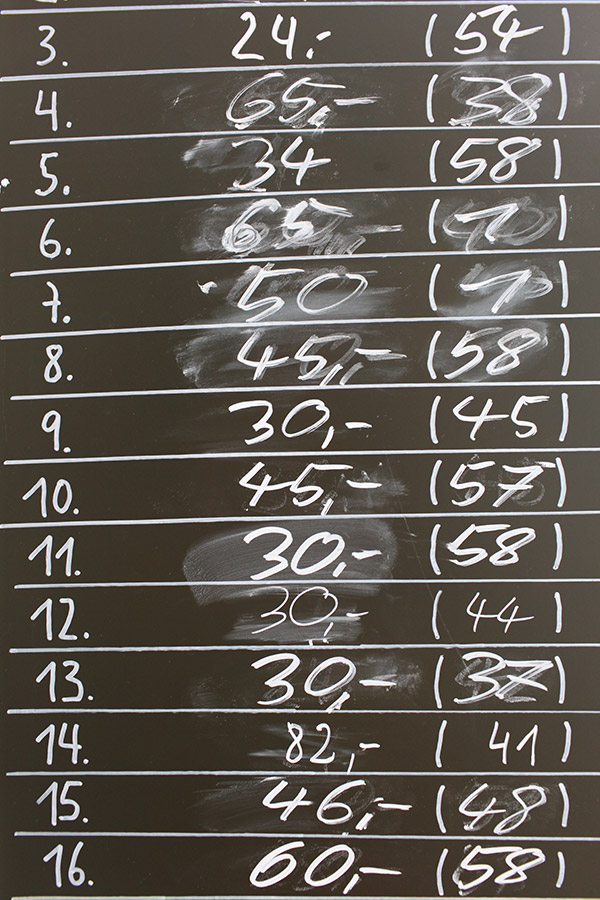 3. 24,- (54)
4. 65,- (38)
5. 34 (58)
6. 65,- (70)
7. 50 (1)
8. 45,- (58)
9. 30,- (45)
10. 45,- (57)
11. 30,- (58)
12. 30,- (44)
13. 30,- (37)
14. 82,- (41)
15. 46,- (48)
16. 60,- (58)